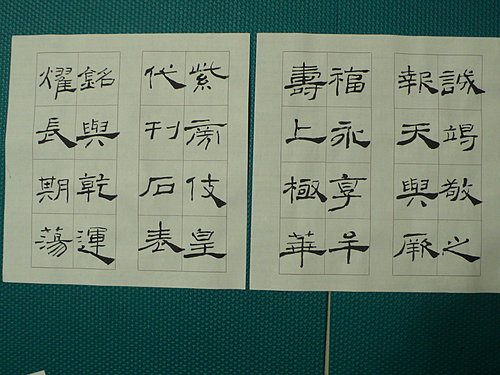 誠竭敬之
報天與厥
福永享牟
壽上極華
紫旁伎皇
代刊石表
銘與乾運
燿長期蕩